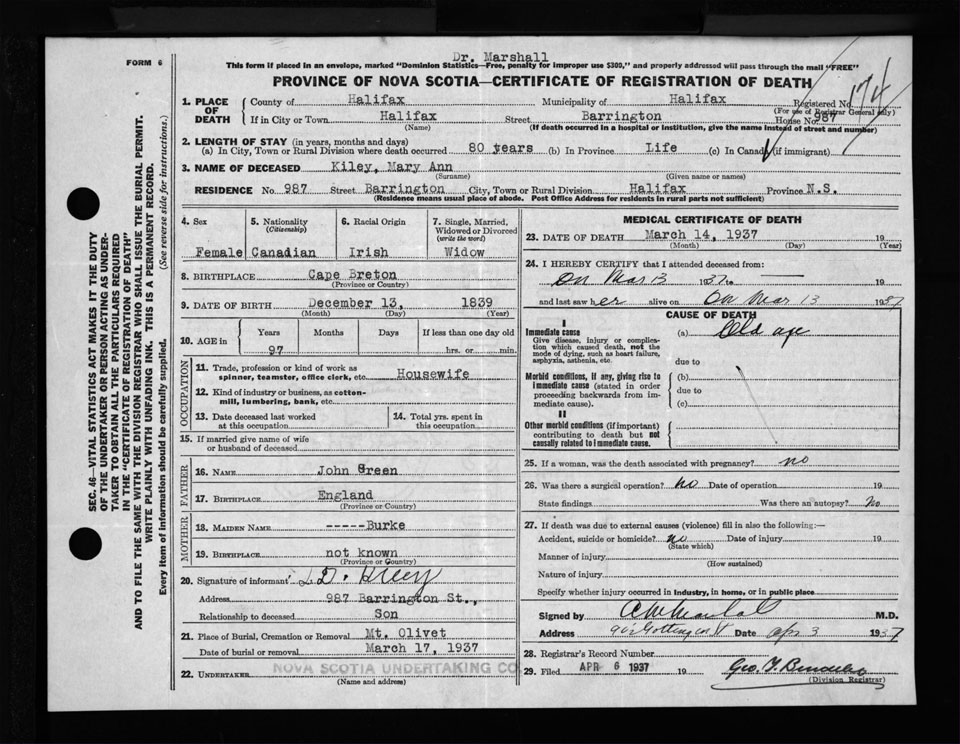 Dr. Marshall
FORM 6
This form if placed in an envelope, marked "Dominion Statistics—Free, penalty for improper use $300," and properly addressed will pass through the mail "FREE"
PROVINCE OF NOVA SCOTIA—CERTIFICATE OF REGISTRATION OF DEATH
174
1. PLACE OF DEATH
County of Halifax Municipality of Halifax Registered No.
(For use of Registrar General only)
If in City or Town Halifax Street Barrington House No. 987
(Name) (If death occurred in a hospital or institution, give the name instead of street and number)
2. LENGTH OF STAY (in years, months and days)
(a) In City, Town or Rural Division where death occurred 80 years (b) In Province Life (c) In Canada (if immigrant)
3. NAME OF DECEASED Kiley, Mary Ann
(Surname) (Given name or names)
RESIDENCE No. 987 Street Barrington City, Town or Rural Division Halifax Province N.S.
(Residence means usual place of abode. Post Office Address for residents in rural parts not sufficient)
4. Sex 5. Nationality (Citizenship) 6. Racial Origin 7. Single, Married, Widowed or Divorced (write the word)
Female Canadian Irish Widow
8. BIRTHPLACE Cape Breton
(Province or Country)
9. DATE OF BIRTH December 13, 1839
(Month) (Day) (Year)
10. AGE in Years Months Days If less than one day old
97 hrs. or min.
OCCUPATION
11. Trade, profession or kind of work as spinner, teamster, office clerk, etc. Housewife
12. Kind of industry or business, as cotton-mill, lumbering, bank, etc.
13. Date deceased last worked at this occupation
14. Total yrs. spent in this occupation
15. If married give name of wife or husband of deceased
FATHER
16. NAME John Green
17. BIRTHPLACE England
(Province or Country)
MOTHER
18. MAIDEN NAME -----Burke
19. BIRTHPLACE not known
(Province or Country)
20. Signature of informant D.
Address 987 Barrington St.,
Relationship to deceased Son
21. Place of Burial, Cremation or Removal Mt. Olivet
Date of burial or removal March 17, 1937
NOVA SCOTIA UNDERTAKING CO
22. UNDERTAKER
(Name and address)
MEDICAL CERTIFICATE OF DEATH
23. DATE OF DEATH March 14, 1937 19
(Month) (Day) (Year)
24. I HEREBY CERTIFY that I attended deceased from:
On Mar 13 1937 to — 19
and last saw her alive on On Mar 13 1937
CAUSE OF DEATH
I
Immediate cause (a) Old age
Give disease, injury or complication which caused death, not the mode of dying, such as heart failure, asphyxia, asthenia, etc.
due to
Morbid conditions, if any, giving rise to immediate cause (stated in order proceeding backwards from immediate cause).
(b)
due to
(c)
II
Other morbid conditions (if important) contributing to death but not causally related to immediate cause.
25. If a woman, was the death associated with pregnancy? no
26. Was there a surgical operation? No Date of operation 19
State findings Was there an autopsy? No
27. If death was due to external causes (violence) fill in also the following:—
Accident, suicide or homicide? no Date of injury 19
(State which)
Manner of injury
(How sustained)
Nature of injury
Specify whether injury occurred in industry, in home, or in public place
Signed by M.D.
Address Date Apr 3 1937
28. Registrar's Record Number
29. Filed APR 6 1937 19 Geo.
(Division Registrar)
SEC. 46—VITAL STATISTICS ACT MAKES IT THE DUTY
OF THE UNDERTAKER OR PERSON ACTING AS UNDER-
TAKER TO OBTAIN ALL THE PARTICULARS REQUIRED
IN THE "CERTIFICATE OF REGISTRATION OF DEATH"
AND TO FILE THE SAME WITH THE DIVISION REGISTRAR WHO SHALL ISSUE THE BURIAL PERMIT.
WRITE PLAINLY WITH UNFADING INK. THIS IS A PERMANENT RECORD.
Every item of information should be carefully supplied. (See reverse side for instructions.)